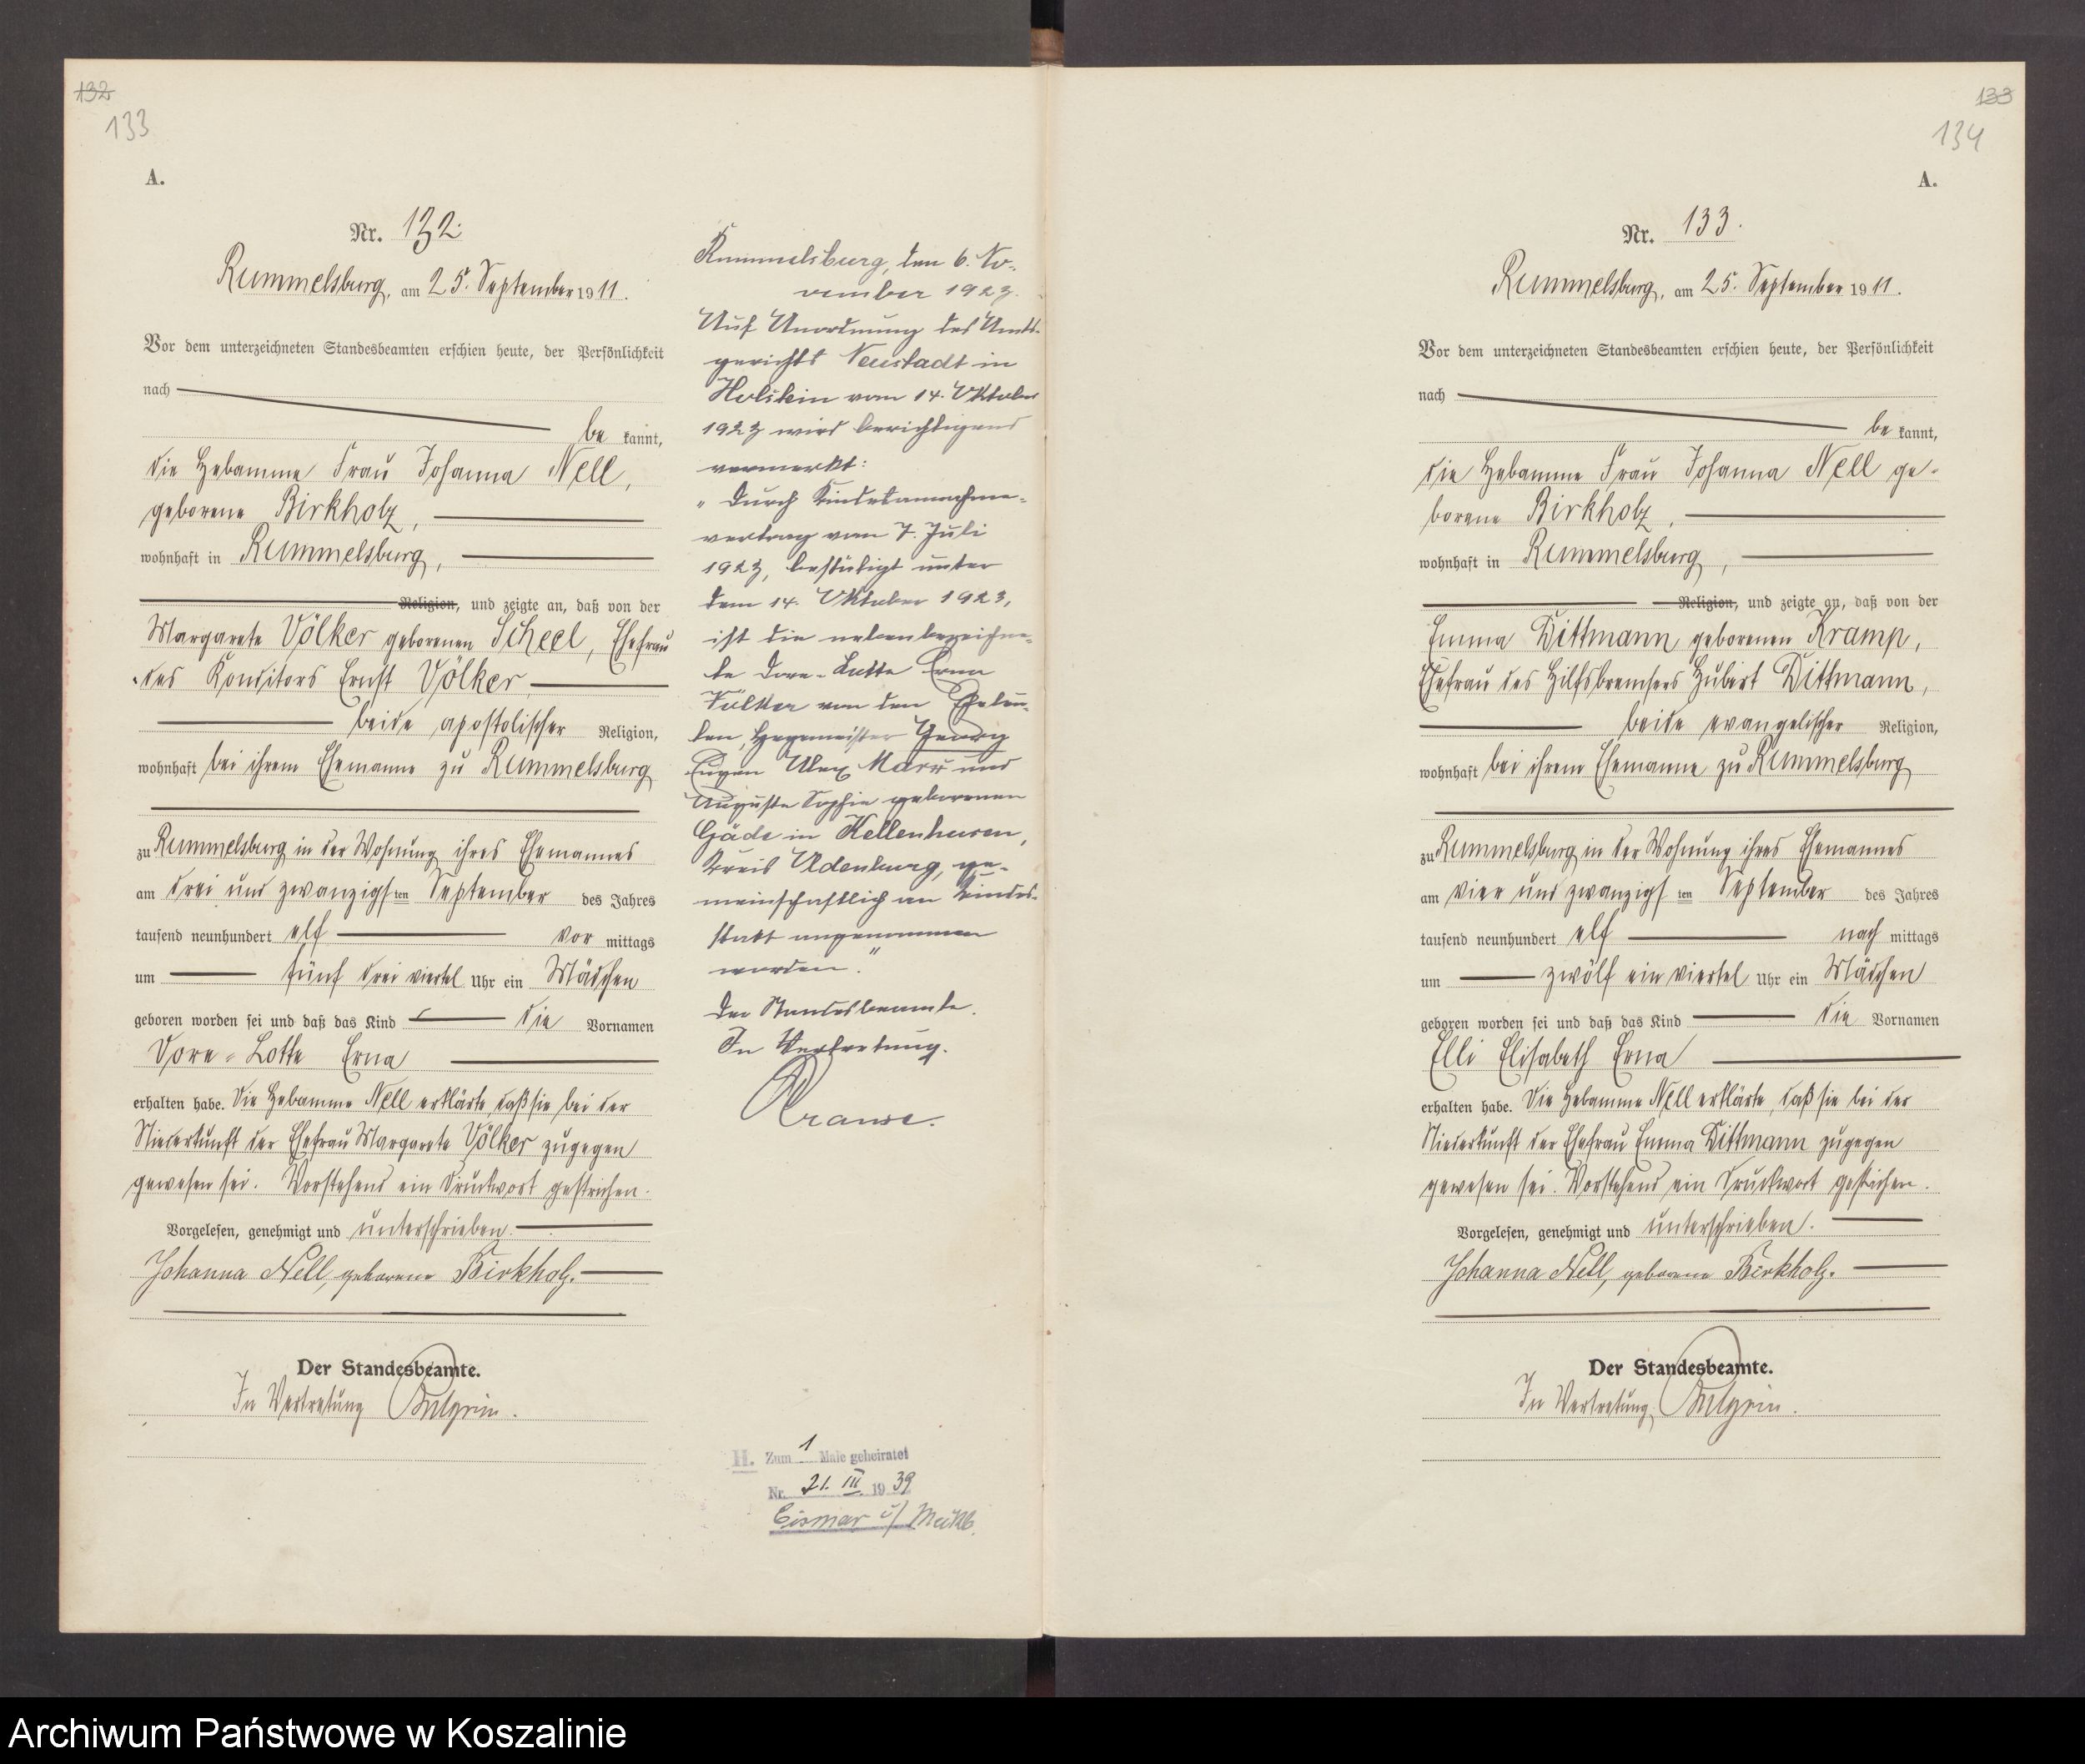 132
133
A.
Nr. 132.
Rummelsburg, am 25. September 1911.
Vor dem unterzeichneten Standesbeamten erschien heute, der Persönlichkeit
nach
be kannt,
die Hebamme Frau Johanna Nell,
geborene Birkholz,
wohnhaft in Rummelsburg,
Religion, und zeigte an, daß von der
Margarete Völker geborenen Scheel, Ehefrau
des Konditors Ernst Völker
beide apostolischer Religion,
wohnhaft bei ihrem Ehemanne zu Rummelsburg
zu Rummelsburg in der Wohnung ihres Ehemannes
am drei und zwanzigsten September des Jahres
tausend neunhundert elf vor mittags
um fünf drei viertel Uhr ein Mädchen
geboren worden sei und daß das Kind die Vornamen
Dore-Lotte Erna
erhalten habe. Die Hebamme Nell erklärte, daß sie bei der
Niederkunft der Ehefrau Margarete Völker zugegen
gewesen sei. Vorstehend ein Druckwort gestrichen.
Vorgelesen, genehmigt und unterschrieben.
Johanna Nell, geborene Birkholz.
Der Standesbeamte.
In Vertretung
Rummelsburg, den 6. No-
vember 1923.
Auf Anordnung des Amts-
gerichts Neustadt in
Holstein vom 14. Oktober
1923 wird berichtigend
vermerkt:
"Durch Kindesannahme-
vertrag vom 7. Juli
1923, bestätigt unter
dem 14. Oktober 1923,
ist die nebenbezeichne-
te Dore-Lotte Erna
Völker von den Eheleu-
ten, Hegemeister Georg
Eugen Alex Marx und
Auguste Sophie geborenen
Gäde in Kellenhusen,
Kreis Oldenburg, ge-
meinschaftlich an Kindes-
statt angenommen
worden."
Der Standesbeamte.
In Vertretung.
Krause.
H. Zum 1 Male geheiratet
Nr. 21. III. 1939
Cismar
133
134
A.
Nr. 133.
Rummelsburg, am 25. September 1911.
Vor dem unterzeichneten Standesbeamten erschien heute, der Persönlichkeit
nach
be kannt,
die Hebamme Frau Johanna Nell ge-
borene Birkholz,
wohnhaft in Rummelsburg,
Religion, und zeigte an, daß von der
Emma Dittmann geborenen Kramp,
Ehefrau des Hilfsbremsers Hubert Dittmann,
beide evangelischer Religion,
wohnhaft bei ihrem Ehemanne zu Rummelsburg
zu Rummelsburg in der Wohnung ihres Ehemannes
am vier und zwanzigsten September des Jahres
tausend neunhundert elf nach mittags
um zwölf ein viertel Uhr ein Mädchen
geboren worden sei und daß das Kind die Vornamen
Elli Elisabeth Erna
erhalten habe. Die Hebamme Nell erklärte, daß sie bei der
Niederkunft der Ehefrau Emma Dittmann zugegen
gewesen sei. Vorstehend ein Druckwort gestrichen.
Vorgelesen, genehmigt und unterschrieben.
Johanna Nell, geborene Birkholz.
Der Standesbeamte.
In Vertretung,
Archiwum Państwowe w Koszalinie